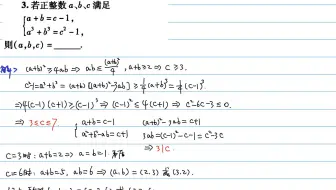 3. 若正整数 a、b、c 满足
{ a + b = c − 1,
a³ + b³ = c² − 1,
则 (a, b, c) = ______.
(a+b)² ≥ 4ab ⇒ ab ≤ (a+b)²/4, a+b ≥ 2 ⇒ c ≥ 3.
c²−1 = a³+b³ = (a+b)[(a+b)²−3ab] ≥ ¼(a+b)³ = ¼(c−1)³
⇒ 4(c−1)(c+1) ≥ (c−1)³ ⇒ (c−1)² ≤ 4(c+1) ⇒ c²−6c−3 ≤ 0.
⇒ 3 ≤ c ≤ 7. { a+b = c−1 (a+b)²−3ab = c+1
a²+b²−ab = c+1 3ab = (c−1)²−c−1 = c²−3c
⇒ 3|c.
c=3时: a+b=2 ⇒ a=b=1.
c=6时: a+b=5, ab=6 ⇒ (a,b) = (2,3) 或 (3,2).